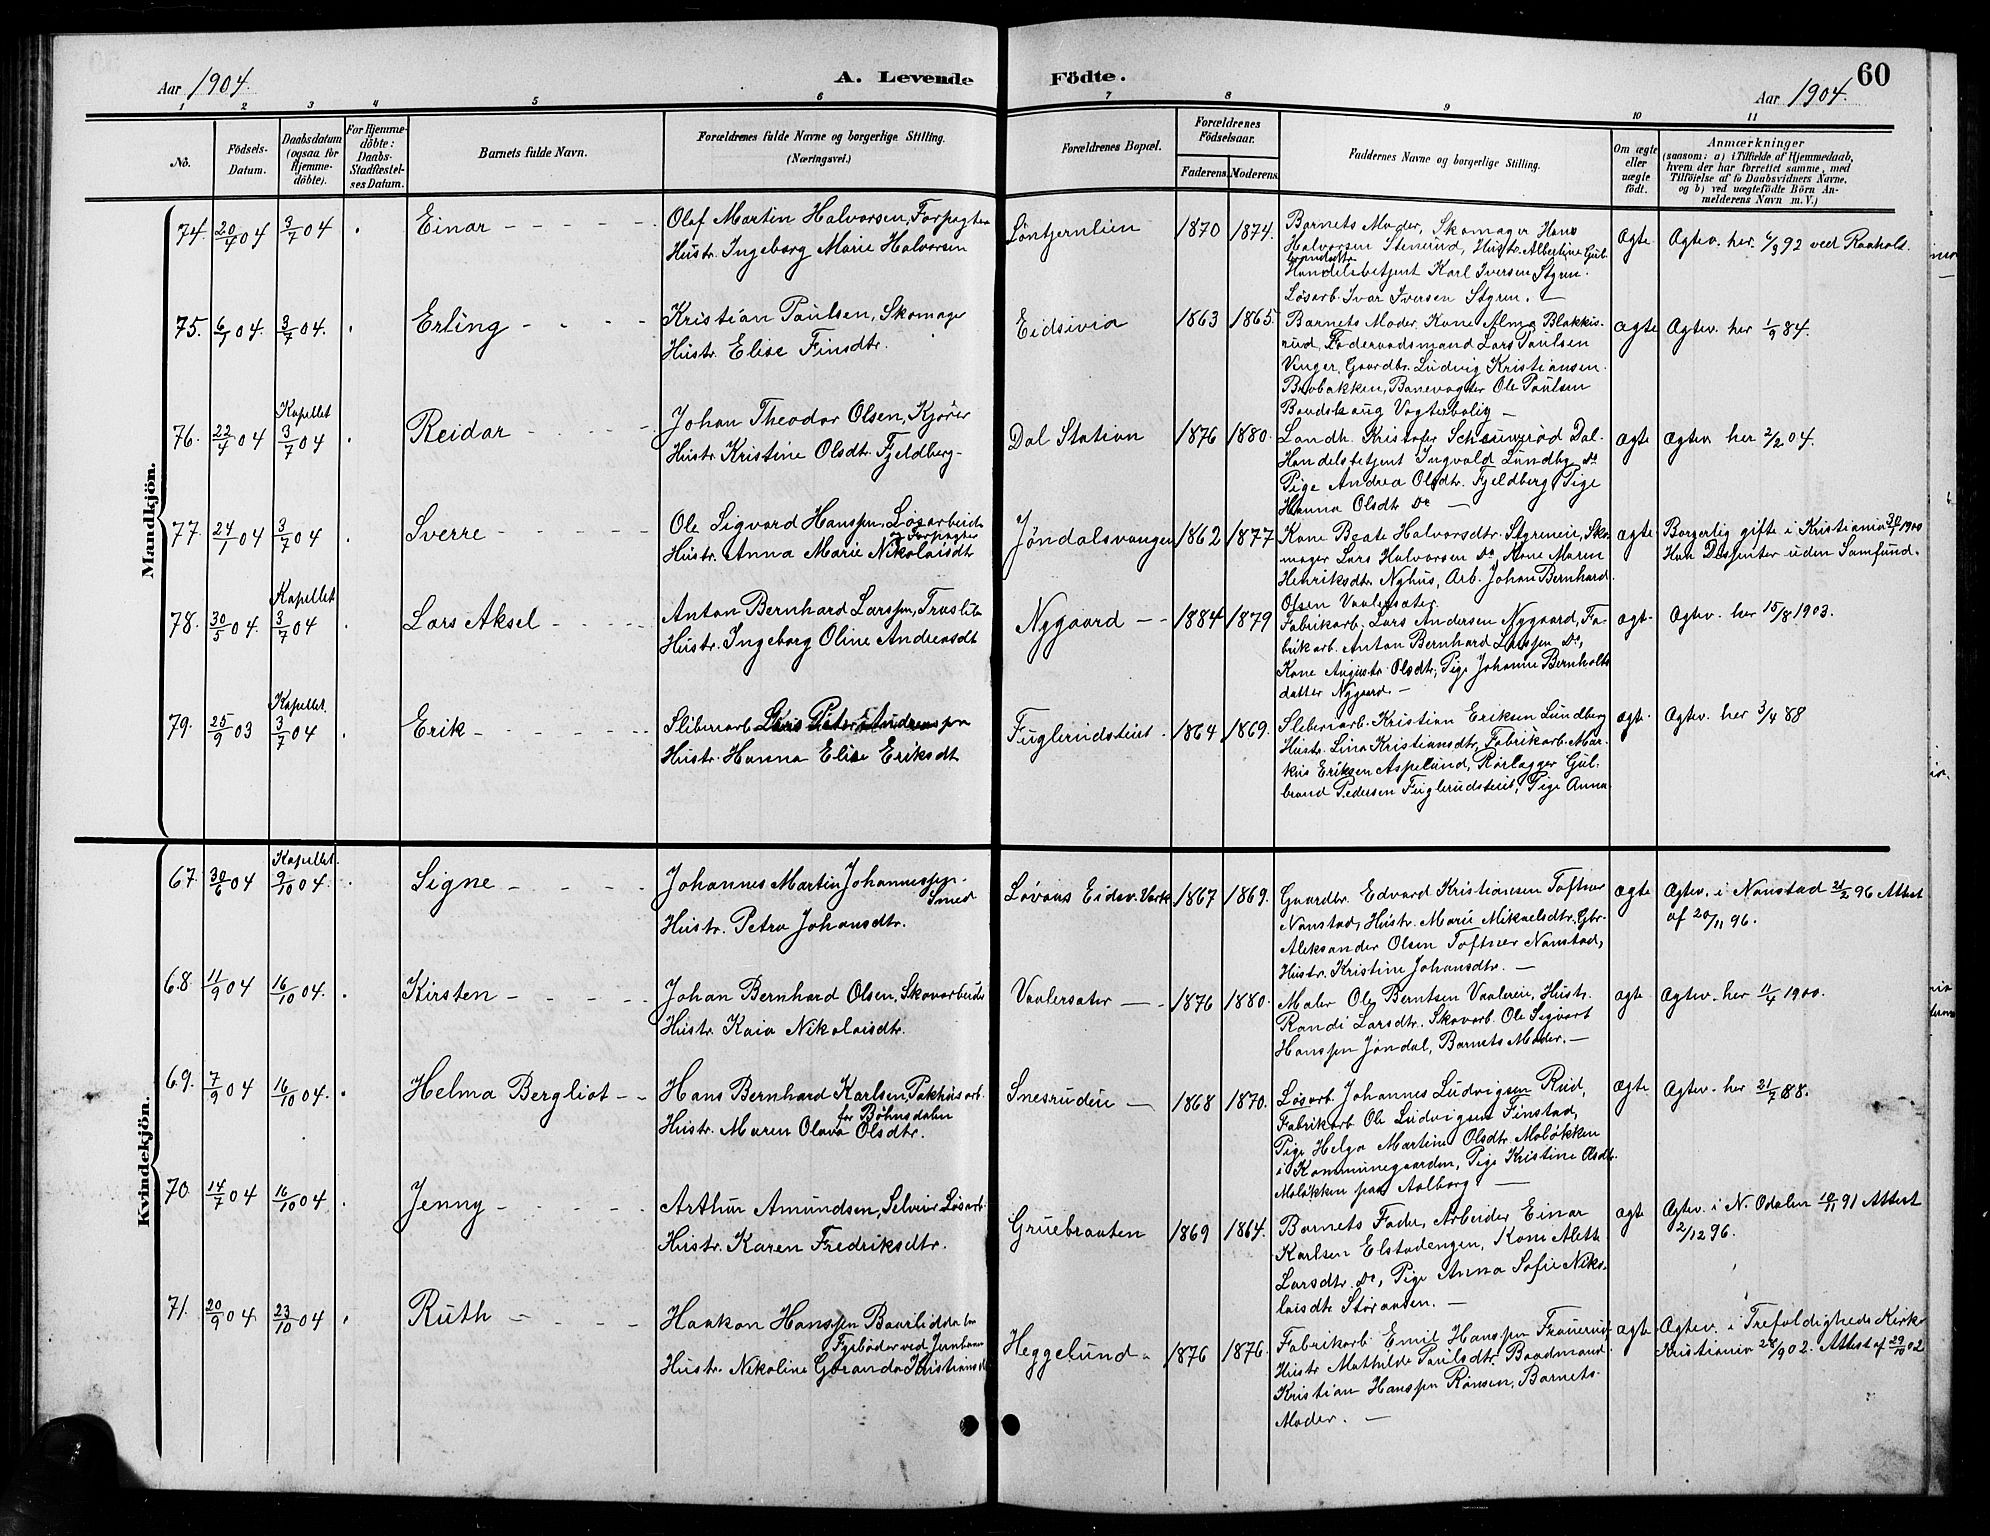 Aar 1904.
A. Levende Födte.
Aar 1904.
60
1 2 3 4 5 6 7 8 9 10 11
Nô. Födsels-Datum. Daabsdatum (ogsaa for Hjemme-döbte). For Hjemme-döbte: Daabs-Stadfæstel-ses Datum. Barnets fulde Navn. Forældrenes fulde Navne og borgerlige Stilling. (Næringsvei.) Forældrenes Bopæl. Forældrenes Födselsaar. Faderens. Moderens. Faddernes Navne og borgerlige Stilling. Om ægte eller uægte födt. Anmærkninger (saasom: a) i Tilfælde af Hjemmedaab, hvem der har forrettet samme, med Tilföielse af to Daabsvidners Navne, og b) ved uægtefödte Börn An-melderens Navn m. V.)
Mandkjön.
74. 20/4 04 3/7 04 Einar
Olaf Martin Halvorsen, Forpagter
Hustr. Ingeborg Marie Halvorsen
Löntjernlien 1870 1874.
Barnets Moder, Skomager Hans
Halvorsen Stenerud, Hustr. Albertine Gul-
brandsdtr
Handelsbetjent Karl Iversen Styren.
Løsarb. Ivar Iversen Styren.
Ægte. Ægtev. her. 6/3 92 ved Raaholt.
75. 6/1 04. 3/7 04. Erling
Kristian Paulsen, Skomager
Hustr. Elise Finsdtr.
Eidsivia 1863 1865.
Barnets Moder, Kone Alma Blakkis-
rud, Föderaadsmand Lars Paulsen
Vinger, Gaardbr. Ludvig Kristiansen
Brobakken, Banevogter Ole Paulsen
Baadshaug Vogterbolig
ægte Ægtev. her 1/9 84.
76. 22/4 04 Kapellet 3/7 04 Reidar
Johan Theodor Olsen, Kjører
Hustr. Kristine Olsdtr. Fjeldberg
Dal Station 1876 1880.
Landh. Kristofer Dal.
Handelsbetjent Ingvald Lundby Do
Pige Andrea Olsdtr. Fjeldberg, Pige
Hanna Olsdtr Do
Ægte Ægtev her 2/2 04.
77. 24/1 04 3/7 04 Sverre
Ole Sigvard Hanssen, Løsarbeid.
og Forpagter
Hustr. Anna Marie Nikolaisdtr
Jøndalsvangen 1862 1877
Kone Beate Halvorsdtr. Styreneie, Sko-
mager Lars Halvorsen Do, Kone Maren
Henriksdtr. Nyhus, Arb. Johan Bernhard
Olsen Vaalersæter.
Ægte Borgerlig gifte i Kristiania 1900
Han Dissenter uden Samfund.
78. 30/5 04. Kapellet 3/7 04 Lars Aksel
Anton Bernhard Larssen,
Hustr. Ingeborg Oline Andreasdt
Nygaard 1884 1879
Fabrikarb. Lars Andersen Nygaard, Fa-
brikarb. Anton Bernhard Larssen Do,
Kone Auguste Olsdtr., Pige Johanne Bernholts
datter Nygaard.
ægt. Ægtev. her 15/8 1903.
79. 25/9 03 Kapellet. 3/7 04 Erik
Sliberiarb.
Hustr. Hanna Elise Eriksdt
Fuglerudsteiet. 1864 1869.
Sliberiarb. Kristian Eriksen Lundberg
Hustr. Lina Kristiansdtr, Fabrikarb. Mar-
kus Eriksen Aspelund, Rørlægger Gul-
brand Pedersen Fuglerudsteiet, Pige Anna
ægt. Ægtev. her 3/4 88
Kvindekjön.
67. 30/6 04 Kapellet. 9/10 04. Signe
Johannes Martin Johannessen
Smed
Hustr. Petra Johansdtr.
Løvaas Eidsv. Værk 1867 1869.
Gaardbr. Edvard Kristiansen Toftner
Nanstad, Hustr. Marie Mikaelsdtr. Gbr.
Aleksander Olsen Toftner Nanstad,
Hustr. Kristine Johansdtr.
Ægte Ægtev. i Nanstad 21/2 96 Attest
af 20/11 96.
68. 11/9 04 16/10 04. Kirsten
Johan Bernhard Olsen, Skovarbeider
Hustr. Kaia Nikolaisdtr.
Vaalersæter 1876 1880.
Maler Ole Berntsen Vaalereie, Hustr.
Randi Larsdtr. Skovarb. Ole Sigvart
Hanssen Jøndal, Barnets Moder.
ægte Ægtev. her 11/4 1900.
69. 7/9 04 16/10 04. Helma Bergliot
Hans Bernhard Karlsen, Pakhusarb.
for Bøhnsdalen
Hustr. Maren Olava Olsdtr.
Snesrudeie 1868 1870.
Løsarb. Johannes Ludvigsen Rud,
Fabrikarb. Ole Ludvigsen Finstad,
Pige Helga Martine Olsdtr. Moløkken
i Kommunegaarden, Pige Kristine Olsdtr.
Moløkken paa Aalborg
Ægte Ægtev. her 21/7 88.
70 14/7 04 16/10 04 Jenny
Arthur Amundsen, Selveier Løsarb.
Hustr. Karen Fredriksdtr.
Gruebraaten 1869 1864.
Barnets Fader, Arbeider Einar
Karlsen Elstadengen, Kone Alette
Larsdtr. Do, Pige Anna Sofie Niko-
laisdtr Støraasen.
ægte Ægtev. i N. Odalen 10/11 91 Attest
2/12 96.
71. 20/9 04 23/10 04 Ruth
Haakon Hanssen
Fyrbøder ved Jernbanen
Hustr. Nikoline
Heggelund 1876 1876.
Fabrikarb. Emil Hanssen
Hustr. Mathilde Paulsdtr. Baadmand
Kristian Hanssen Rønsen, Barnets
Moder.
ægte Ægtev. i Trefoldigheds Kirke
Kristiania 28/9 02. Attest af 29/10 02